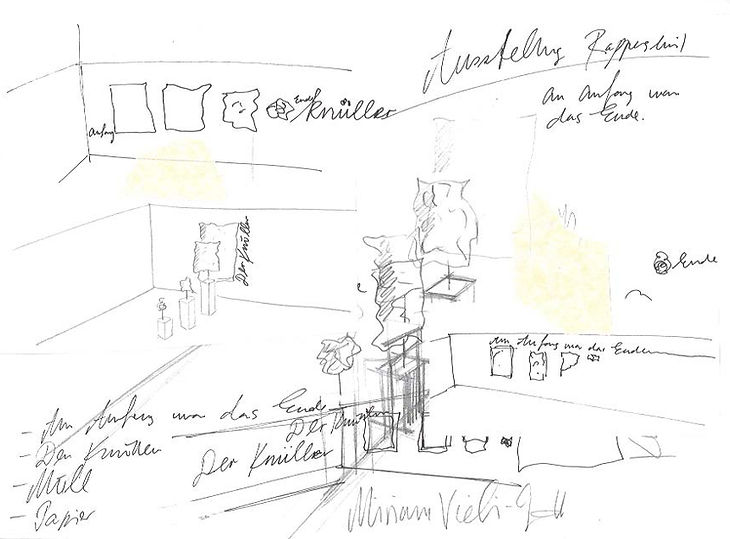 Ausstellung Rapperswil
Am Anfang war
das Ende.
Anfang
Ende
Knüller
Der Knüller
Ende
Am Anfang war das Ende
- Am Anfang war das Ende
- Der Knüller
- Müll
- Papier
Der Knüller
Der Knüller
Miriam